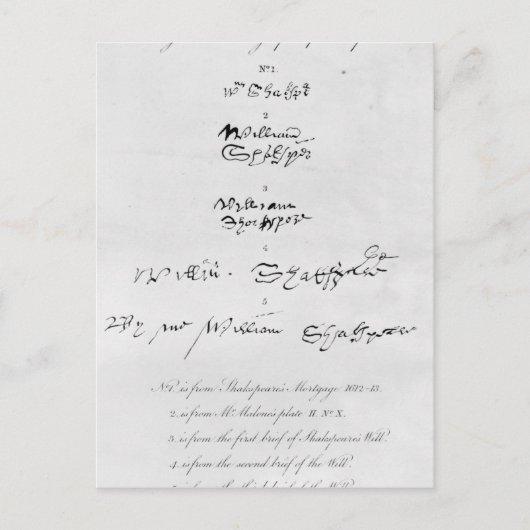 No. 1.
Wm Shakspe
2
William
Shakspere
3
William
Shakspere
4
Willm. Shakspere
5
By me William Shakspeare
No. 1. is from Shakspeare's Mortgage 1612-13.
2. is from Mr. Malone's plate II. No. X.
3. is from the first brief of Shakspeare's Will.
4. is from the second brief of the Will.